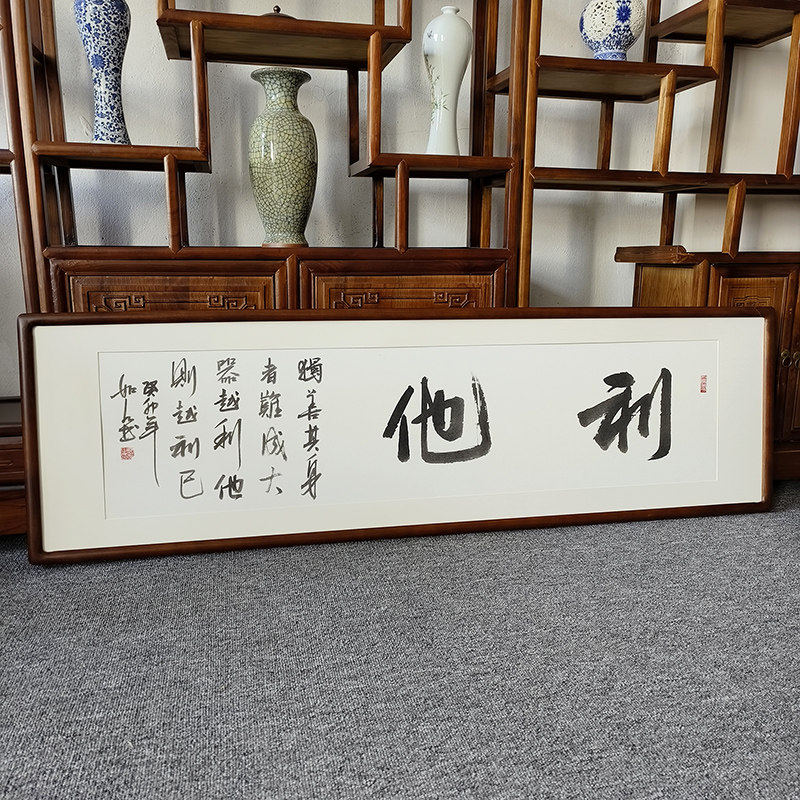 利
他
獨善其身
者難成大
器越利他
則越利己
癸卯年